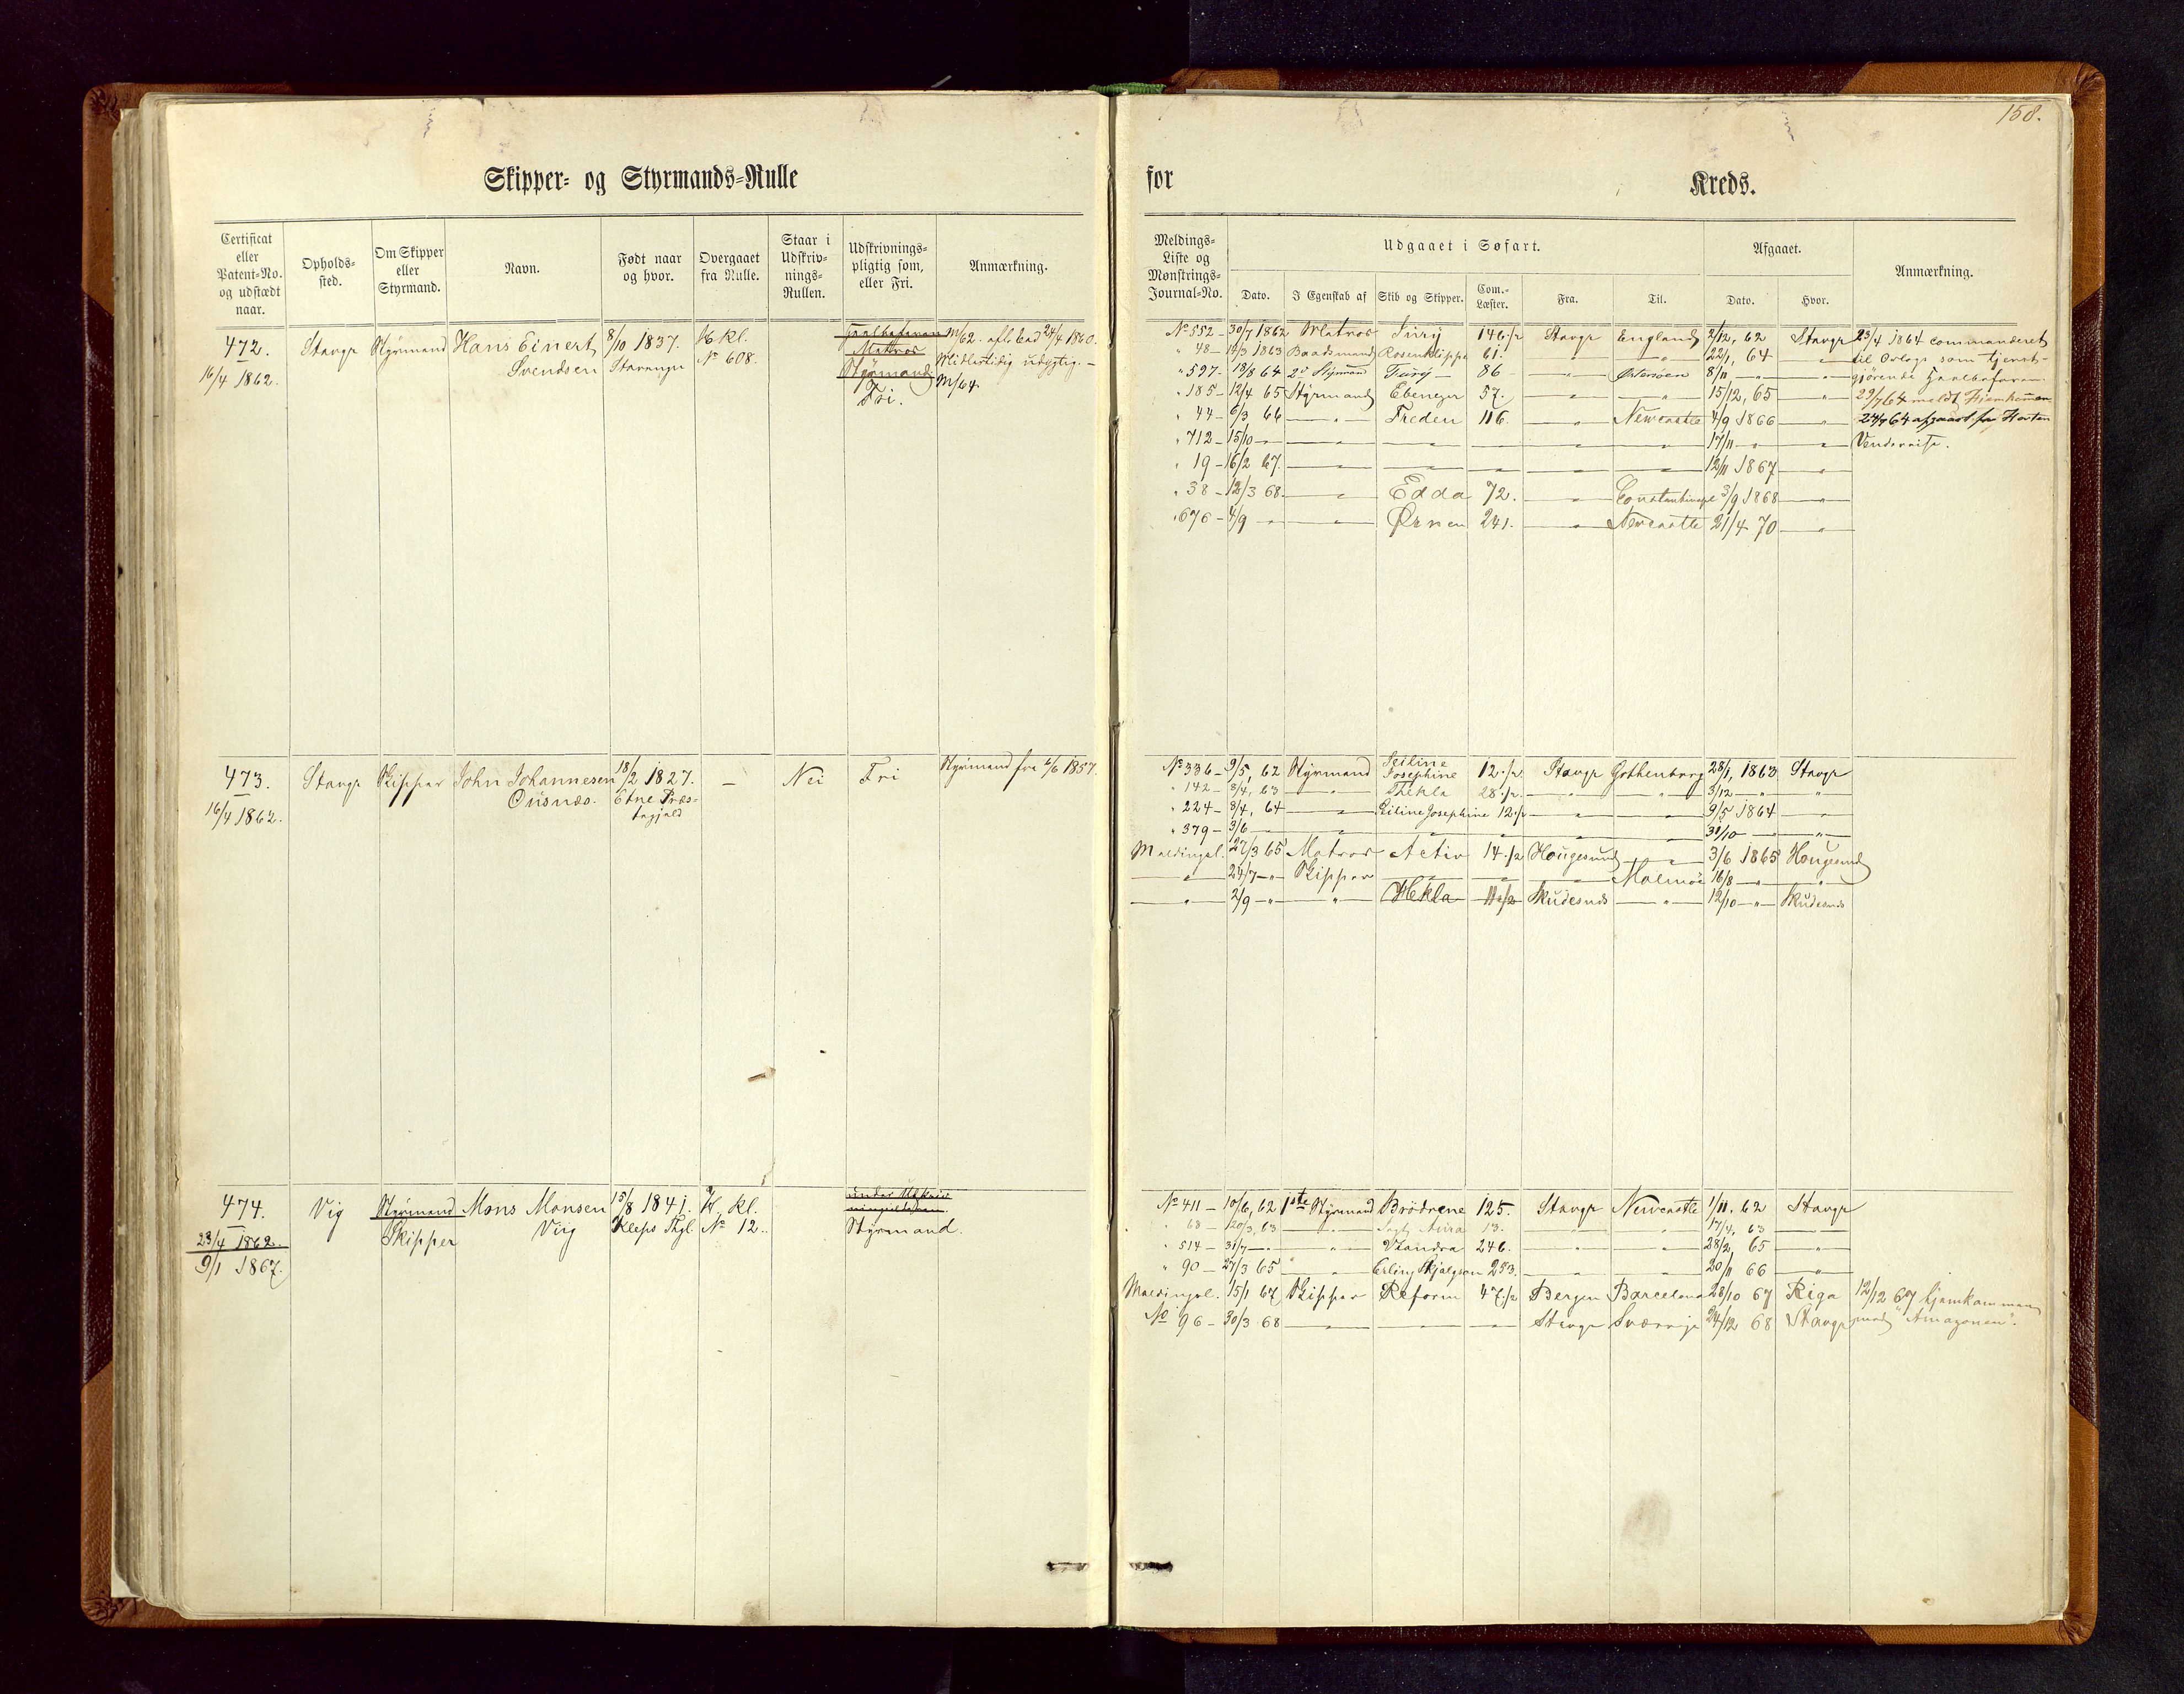 158.
Skipper- og Styrmands-Rulle for Kreds.
Certificat eller Patent-No. og udstædt naar.
Opholds-sted.
Om Skipper eller Styrmand.
Navn.
Født naar og hvor.
Overgaaet fra Rulle.
Staar i Udskriv-nings-Rullen.
Udskrivnings-pligtig som, eller Fri.
Anmærkning.
Meldings-Liste og Mønstrings-Journal-No.
Udgaaet i Søfart.
Dato.
I Egenskab af
Skib og Skipper.
Com.-Læster.
Fra.
Til.
Afgaaet.
Dato.
Hvor.
Anmærkning.
472. Stavgr Styrmand Hans Einert 8/10 1837. K kl. M/62. 24/4 1860.
16/4 1862. Svendsen Stavangr No 608. Matros Midlertidig udygtig. –
Styrmand M/64
Fri.
No 552 – 30/7 1862 Matros Fury 146 ./2 Stavgr England 2/12, 62 Stavgr 23/4 1864 commanderet
" 48 – 1863 Baadsmand Rosenklippe 61. – " – – " – 22/1, 64 – " – til Orlogs som tjenst-
" 597 – 18/8 64 2d Styrmand Fury – 86 – " – Østersöen 8/11 – " – – " – gjørende
" 185 – 12/4 65 Styrmand Ebenezer 57. – " – – " – 15/12, 65 – " – 29/7 64 meldt Hjemkommen
" 44 – 6/3 66 – " – Freden 116. – " – Newcastle 4/9 1866 – " – 64 fra Horten
" 712 – 15/10 – " – – " – – " – – " – – " – – " – 17/11 – " – – " –
" 19 – 16/2 67. – " – – " – – " – – " – – " – 12/11 1867 – " –
" 38 – 12/3 68. – " – Edda 72. – " – Constantinopel 3/9 1868 – " –
" 676 – 4/9 – " – – " – Ørnen 241. – " – Newcastle 21/4 70 – " –
473. Stavgr Skipper John Johannesen 18/2 1827. – Nei Fri Styrmand fra 1857.
16/4 1862. Etne Præs-
tegjeld
No 336 – 9/5, 62 Styrmand Seiline Josephine 12 ./2 Stavgr Gothenborg 28/1, 1863 Stavgr
" 142 – 8/4, 63 – " – Thekla 28 ./2 – " – – " – 3/12 – " – – " –
" 224 – 8/4, 64 – " – Seiline Josephine 12 ./2 – " – – " – 9/5 1864 – " –
" 379 – 3/6 – " – – " – – " – – " – – " – – " – 31/10 – " – – " –
Meldingsl. 27/3 65 Matros Activ 14 ./2 Hougesund – " – 3/6 1865 Hougesund
– " – 24/7 – " – Skipper – " – – " – – " – Malmöe 16/8 – " – – " –
– " – 2/9 – " – – " – Hekla 11 ./2 Skudesnds – " – 12/10 – " – Skudesnds
474. Vig Styrmand Mons Monsen 15/8 1841. K. kl.
23/4 1862. Skipper Viig Kleps Thgl. No 12. Styrmand.
9/1 1867.
No 411 – 10/6, 62 1ste Styrmand Brödrene 125. Stavgr Newcastle 1/11. 62 Stavgr
" 68 – 20/3, 63 – " – Aura 13. – " – – " – 17/4, 63 – " –
" 514 – 31/7 – " – – " – 246. – " – – " – 28/2, 65 – " –
" 90 – 27/3 65 – " – Erling Skjalgson 253. – " – – " – 20/11 66 – " –
Meldingsl. 15/1 67 Skipper Reform 47 ./2 Bergen Barcelona 28/10 67 Riga 12/12 67 hjemkommen
No 96 – 30/3 68 – " – – " – – " – Stavgr Sverrige 24/12 68 Stavgr med "Amazonen".